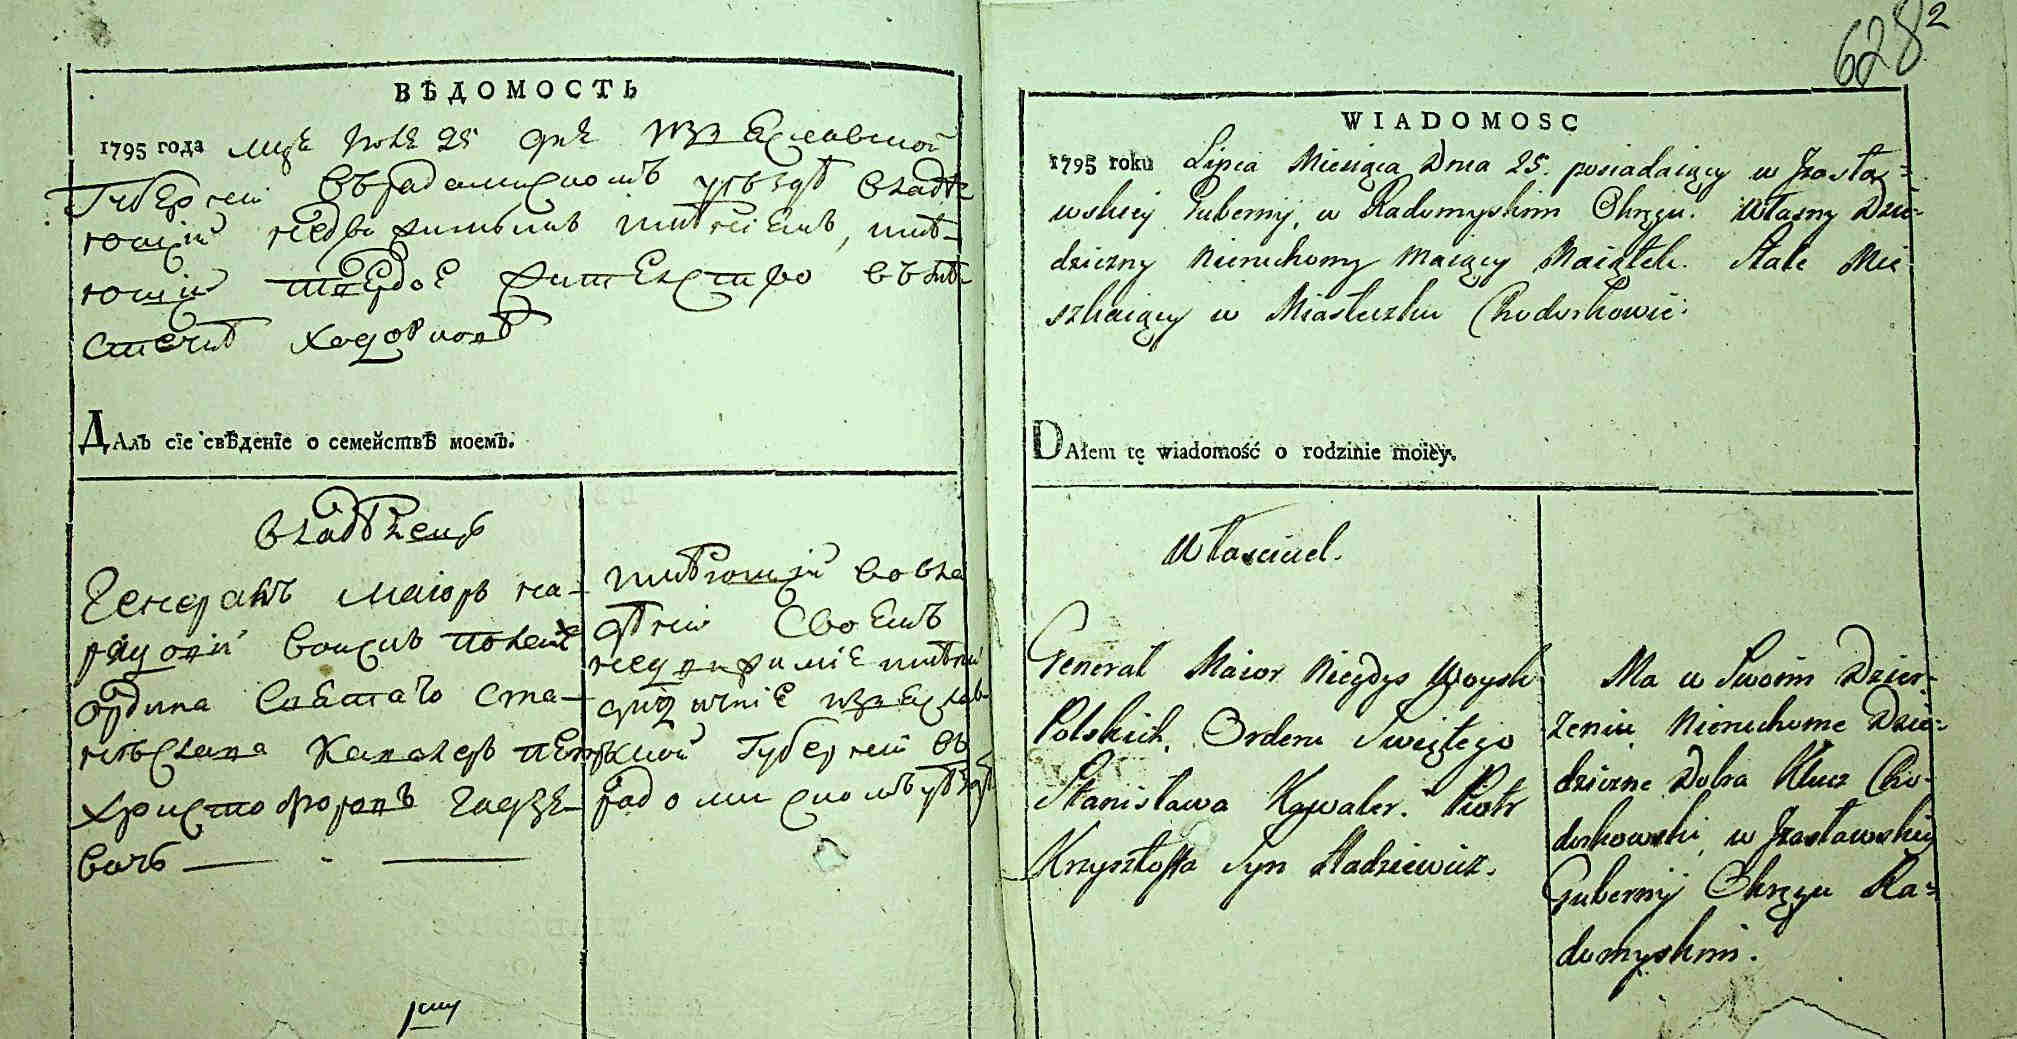 628 2
ВѢДОМОСТЬ
1795 года мца июля 25 дня изяславской
Губернии въ радомисломъ уѣздѣ владѣ-
ющій недвижимымъ имѣніемъ, имѣ-
ющій твердое жителство въ мѣ-
стечкѣ ходоркове
ДАлъ сїе свѣденїе о семействѣ моемъ.
владѣлецъ
Генералъ маіоръ на-
войскъ полскихъ
ордина святаго ста-
нислава кавалеръ петръ
христофоровъ гадзе-
вичъ
имѣющій во вла
дѣнии своемъ
недвижимие имѣнии
изяслав-
ской Губернии въ
радомисломъ уѣздѣ
WIADOMOSC
1795 roku Lipca Miesiąca Dnia 25. posiadaiący w Jzasław-
wskiey Gubernij, w Radomyskim Okręgu. Własny Dzie-
dziczny Nieruchomy Maiący Maiątek. Stale Mie
szkaiący w Miasteczku Chodorkowie.
DAłem tę wiadomość o rodzinie moiey.
Własciciel.
Generał Maior Niegdys Woysk
Polskich, Orderu Swiętego
Stanisława Kawaler. Piotr
Krzysztoffa Syn Hadziewicz.
Ma w Swoim Dzier-
żeniu Nieruchome Dzie-
dziczne Dobra Klucz Cho-
dorkowski, w Jzasławskiey
Gubernij Okręgu Ra-
domyskim.